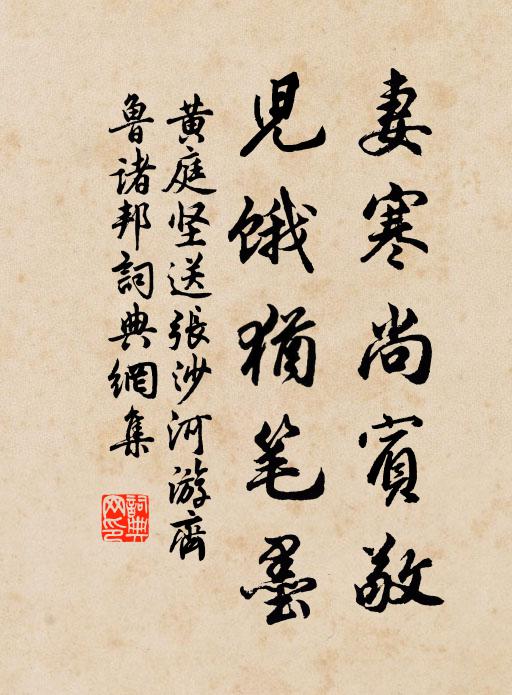 妻寒尚賓敬
児饿猶笔墨
黄庭坚送張沙河游齊
魯诸邦詞典網集
詞典
网印